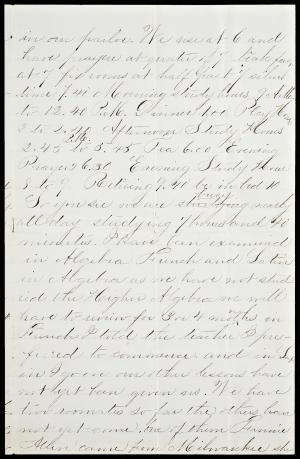 in our parlor. We rise at 6 and
have prayer at quarter of 7 breakfast
at 7 fix rooms at half past 7 silent
time 7.40 Morning Study hours
to 12.40 P.M. Dinner 1.00 Play Hour
2 to 2.45 Afternoon Study Hours
2.45 to 5.45 Tea 6.00 Evening
Prayer 6.30 Evening Study Hour
8 to 9 Retiring 9.40 be in bed 10
So you see we are busy nearly
all day studying 7 hours and 40
minutes. I have been examined
in Algebra French and Latin
in Algebra as we have not stud
ied the Higher Algebra we will
have to review for 3 or 4 months in
French I told the teacher I pre-
ferred to commence and in
in I go on our other lessons have
not yet been given us. We have
two roomates so far the others have
not yet come. one of them Fannie
Allin came from Milwaukee she